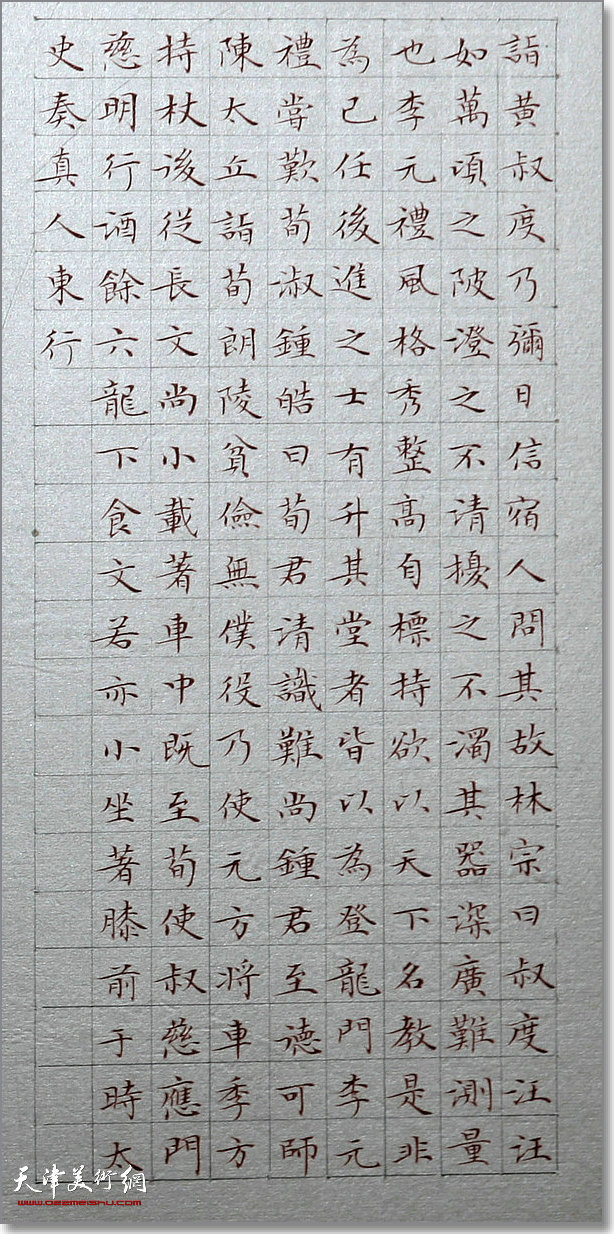 詣黃叔度乃彌日信宿人問其故林宗曰叔度汪汪
如萬頃之陂澄之不清擾之不濁其器深廣難測量
也李元禮風格秀整高自標持欲以天下名教是非
為己任後進之士有升其堂者皆以為登龍門李元
禮嘗歎荀淑鍾皓曰荀君清識難尚鍾君至德可師
陳太丘詣荀朗陵貧儉無僕役乃使元方將車季方
持杖後從長文尚小載著車中既至荀使叔慈應門
慈明行酒餘六龍下食文若亦小坐著膝前于時太
史奏真人東行
天津美術網
www.022meishu.com